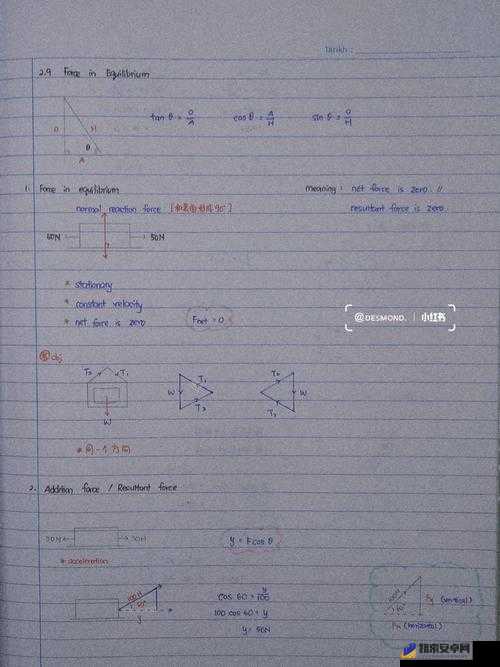 tarikh:
2.9 Force in Equilibrium
tan θ = O/A cos θ = A/H sin θ = O/H
O H θ
A
1. Force in equilibrium meaning: net force is zero //
normal reaction force resultant force is zero.
50N
* stationary
* constant velocity
* net force is zero Fnet = 0
@DESMOND. | 小红书
obj
T₂ T₁ W T₁ T₂ W
W
* 同一个方向
2. Addition force / Resultant force
50N 30N y = F cos θ
* acceleration
100N 60° y
cos 60 = y/100
100 cos 60 = y
y = 50N
100N 60° Fy (vertical)
Fx (horizontal)
翔东安卓网